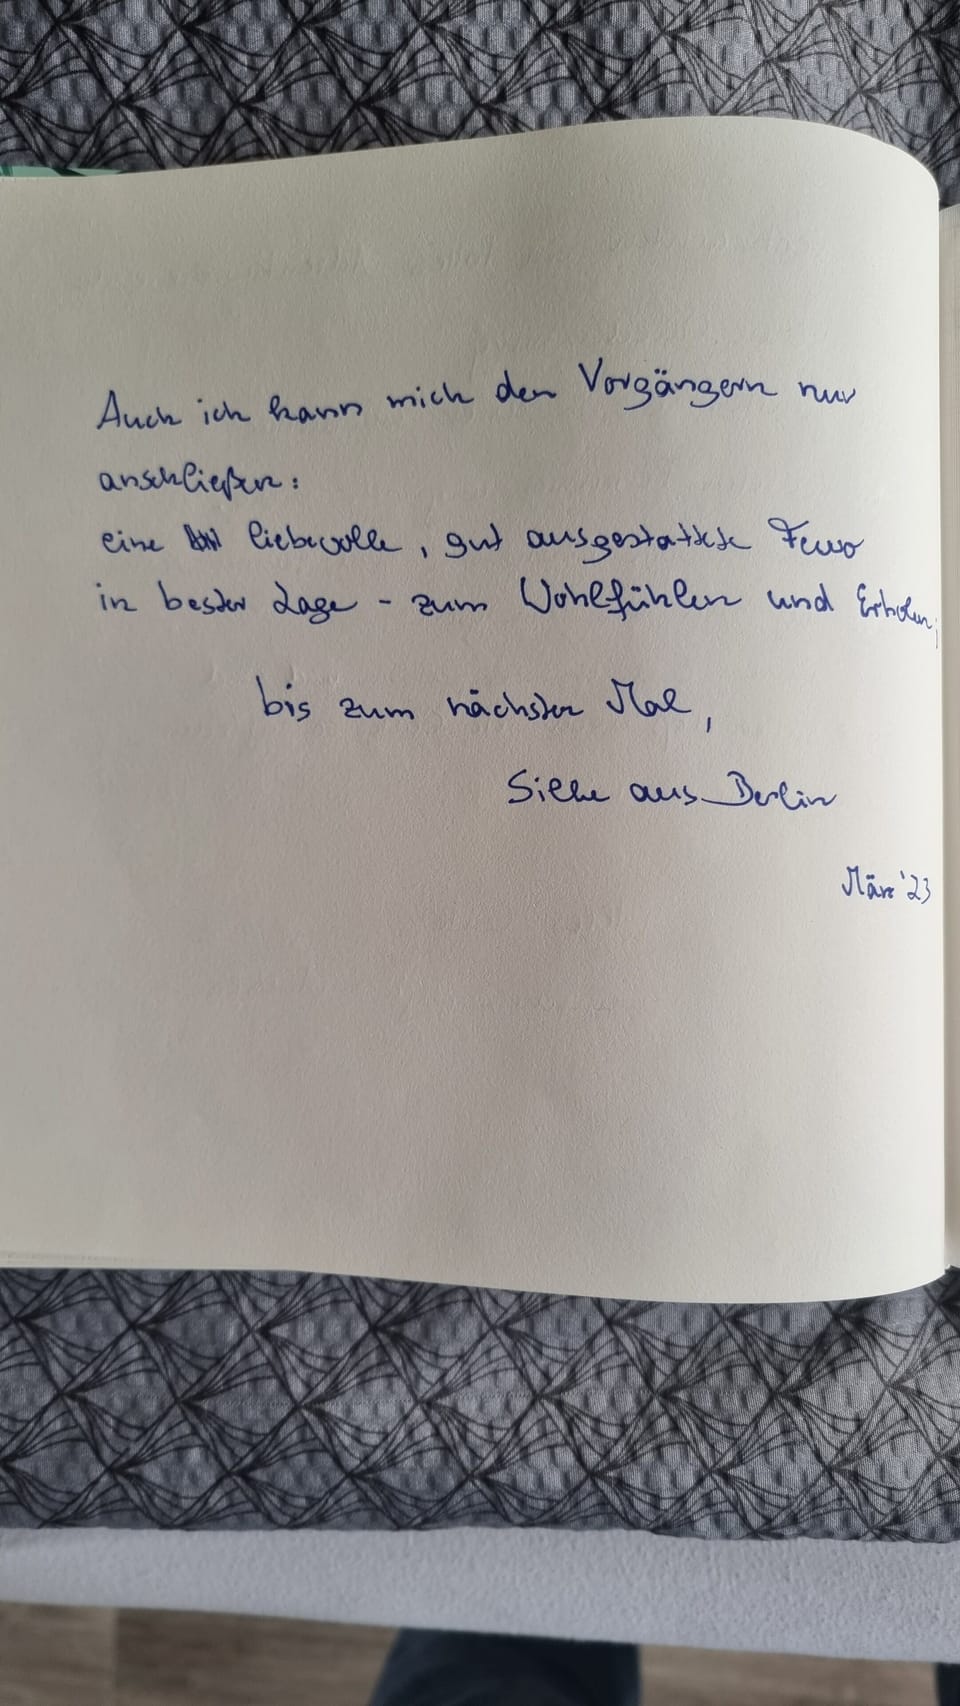 Auch ich kann mich den Vorgängern nur
anschließen:
eine liebevolle, gut ausgestattete Fewo
in bester Lage - zum Wohlfühlen und Erholen;
bis zum nächsten Mal,
Silke aus Berlin
März '23